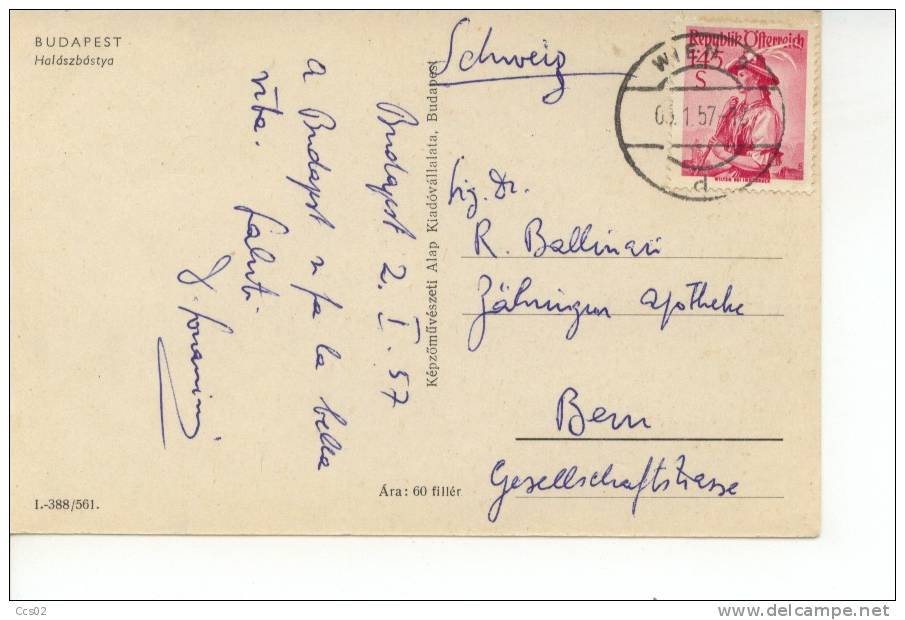 BUDAPEST
Halászbástya
Budapest 2. I. 57
a Budapest si fa la bella
vita.
Saluti
Képzőművészeti Alap Kiadóvállalata, Budapest
Schweiz
Republik Österreich
1.45
S
WIEN
1.57
d
Sig. Dr.
R. Ballinari
Zähringer Apotheke
Bern
Gesellschaftstrasse
Ára: 60 fillér
I.-388/561.
Ccs02
delcampe.net